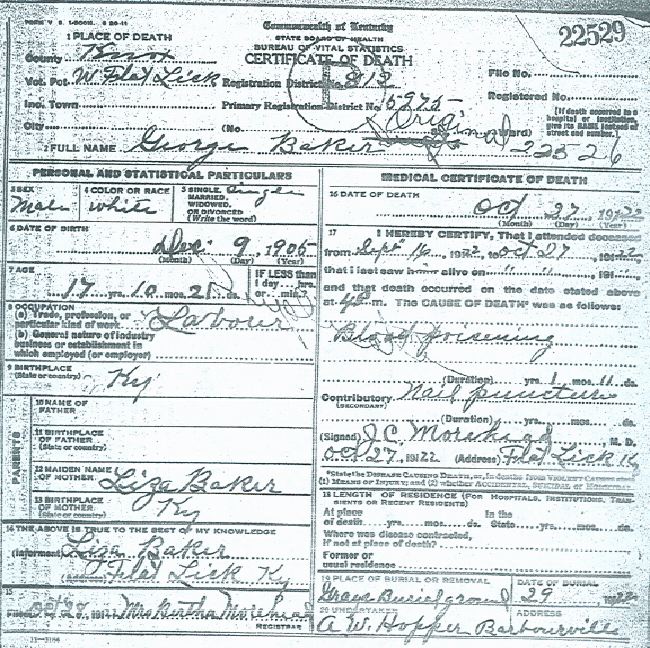 Commonwealth of Kentucky
STATE BOARD OF HEALTH
BUREAU OF VITAL STATISTICS
CERTIFICATE OF DEATH
22529
1 PLACE OF DEATH
County Knox
Vot. Pct. W Flat Lick Registration District No. 812
Inc. Town Primary Registration District No. 5975
City (No. Ward)
File No.
Registered No.
(If death occurred in a hospital or institution, give its NAME instead of street and number.)
Original
22526
2 FULL NAME George Baker
PERSONAL AND STATISTICAL PARTICULARS
3 SEX Male
4 COLOR OR RACE white
5 SINGLE, MARRIED, WIDOWED, OR DIVORCED (Write the word) Single
6 DATE OF BIRTH
Dec 9, 1905
(Month) (Day) (Year)
7 AGE
17 yrs. 10 mos. 21 ds.
IF LESS than 1 day hrs. or min.?
8 OCCUPATION
(a) Trade, profession, or particular kind of work Labour
(b) General nature of industry business or establishment in which employed (or employer)
9 BIRTHPLACE (State or country) Ky
PARENTS
10 NAME OF FATHER
11 BIRTHPLACE OF FATHER (State or country)
12 MAIDEN NAME OF MOTHER Liza Baker
13 BIRTHPLACE OF MOTHER (State or country) Ky
14 THE ABOVE IS TRUE TO THE BEST OF MY KNOWLEDGE
(Informant) Liza Baker
(Address) Flat Lick Ky
15
Filed Oct 28, 1922 Mrs Bertha Morehead
REGISTRAR
MEDICAL CERTIFICATE OF DEATH
16 DATE OF DEATH
Oct 27, 1922
(Month) (Day) (Year)
17 I HEREBY CERTIFY, That I attended deceased
from Sept 16, 1922, to Oct 27, 1922
that I last saw him alive on " " 191
and that death occurred on the date stated above
at m. The CAUSE OF DEATH* was as follows:
Blood poisening
(Duration) yrs. 1 mos. 11 ds.
Contributory (SECONDARY) Nail puncture
(Duration) yrs. mos. ds.
(Signed) J C Morehead, M. D.
Oct 27, 1922 (Address) Flat Lick Ky
*State the DISEASE CAUSING DEATH, or, in deaths from VIOLENT CAUSES state
(1) MEANS OF INJURY; and (2) whether ACCIDENTAL, SUICIDAL or HOMICIDAL
18 LENGTH OF RESIDENCE (FOR HOSPITALS, INSTITUTIONS, TRANSIENTS OR RECENT RESIDENTS)
At place of death yrs. mos. ds. In the State yrs. mos. ds.
Where was disease contracted, if not at place of death?
Former or usual residence
19 PLACE OF BURIAL OR REMOVAL
Burial ground
DATE OF BURIAL
29 1922
20 UNDERTAKER
A W. Hopper
ADDRESS
Barbourville